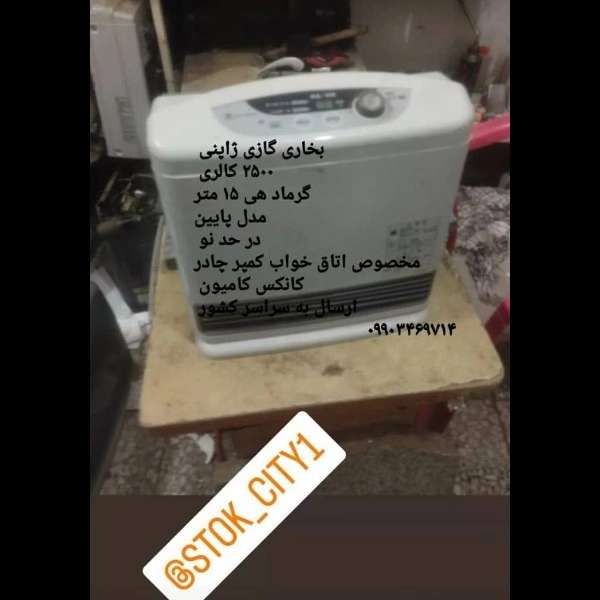 بخاری گازی ژاپنی
۲۵۰۰ کالری
گرماد هی ۱۵ متر
مدل پایین
در حد نو
مخصوص اتاق خواب کمپر چادر
کانکس کامیون
ارسال به سراسر کشور
۰۹۹۰۳۴۶۹۷۱۴
@STOK_CITY1